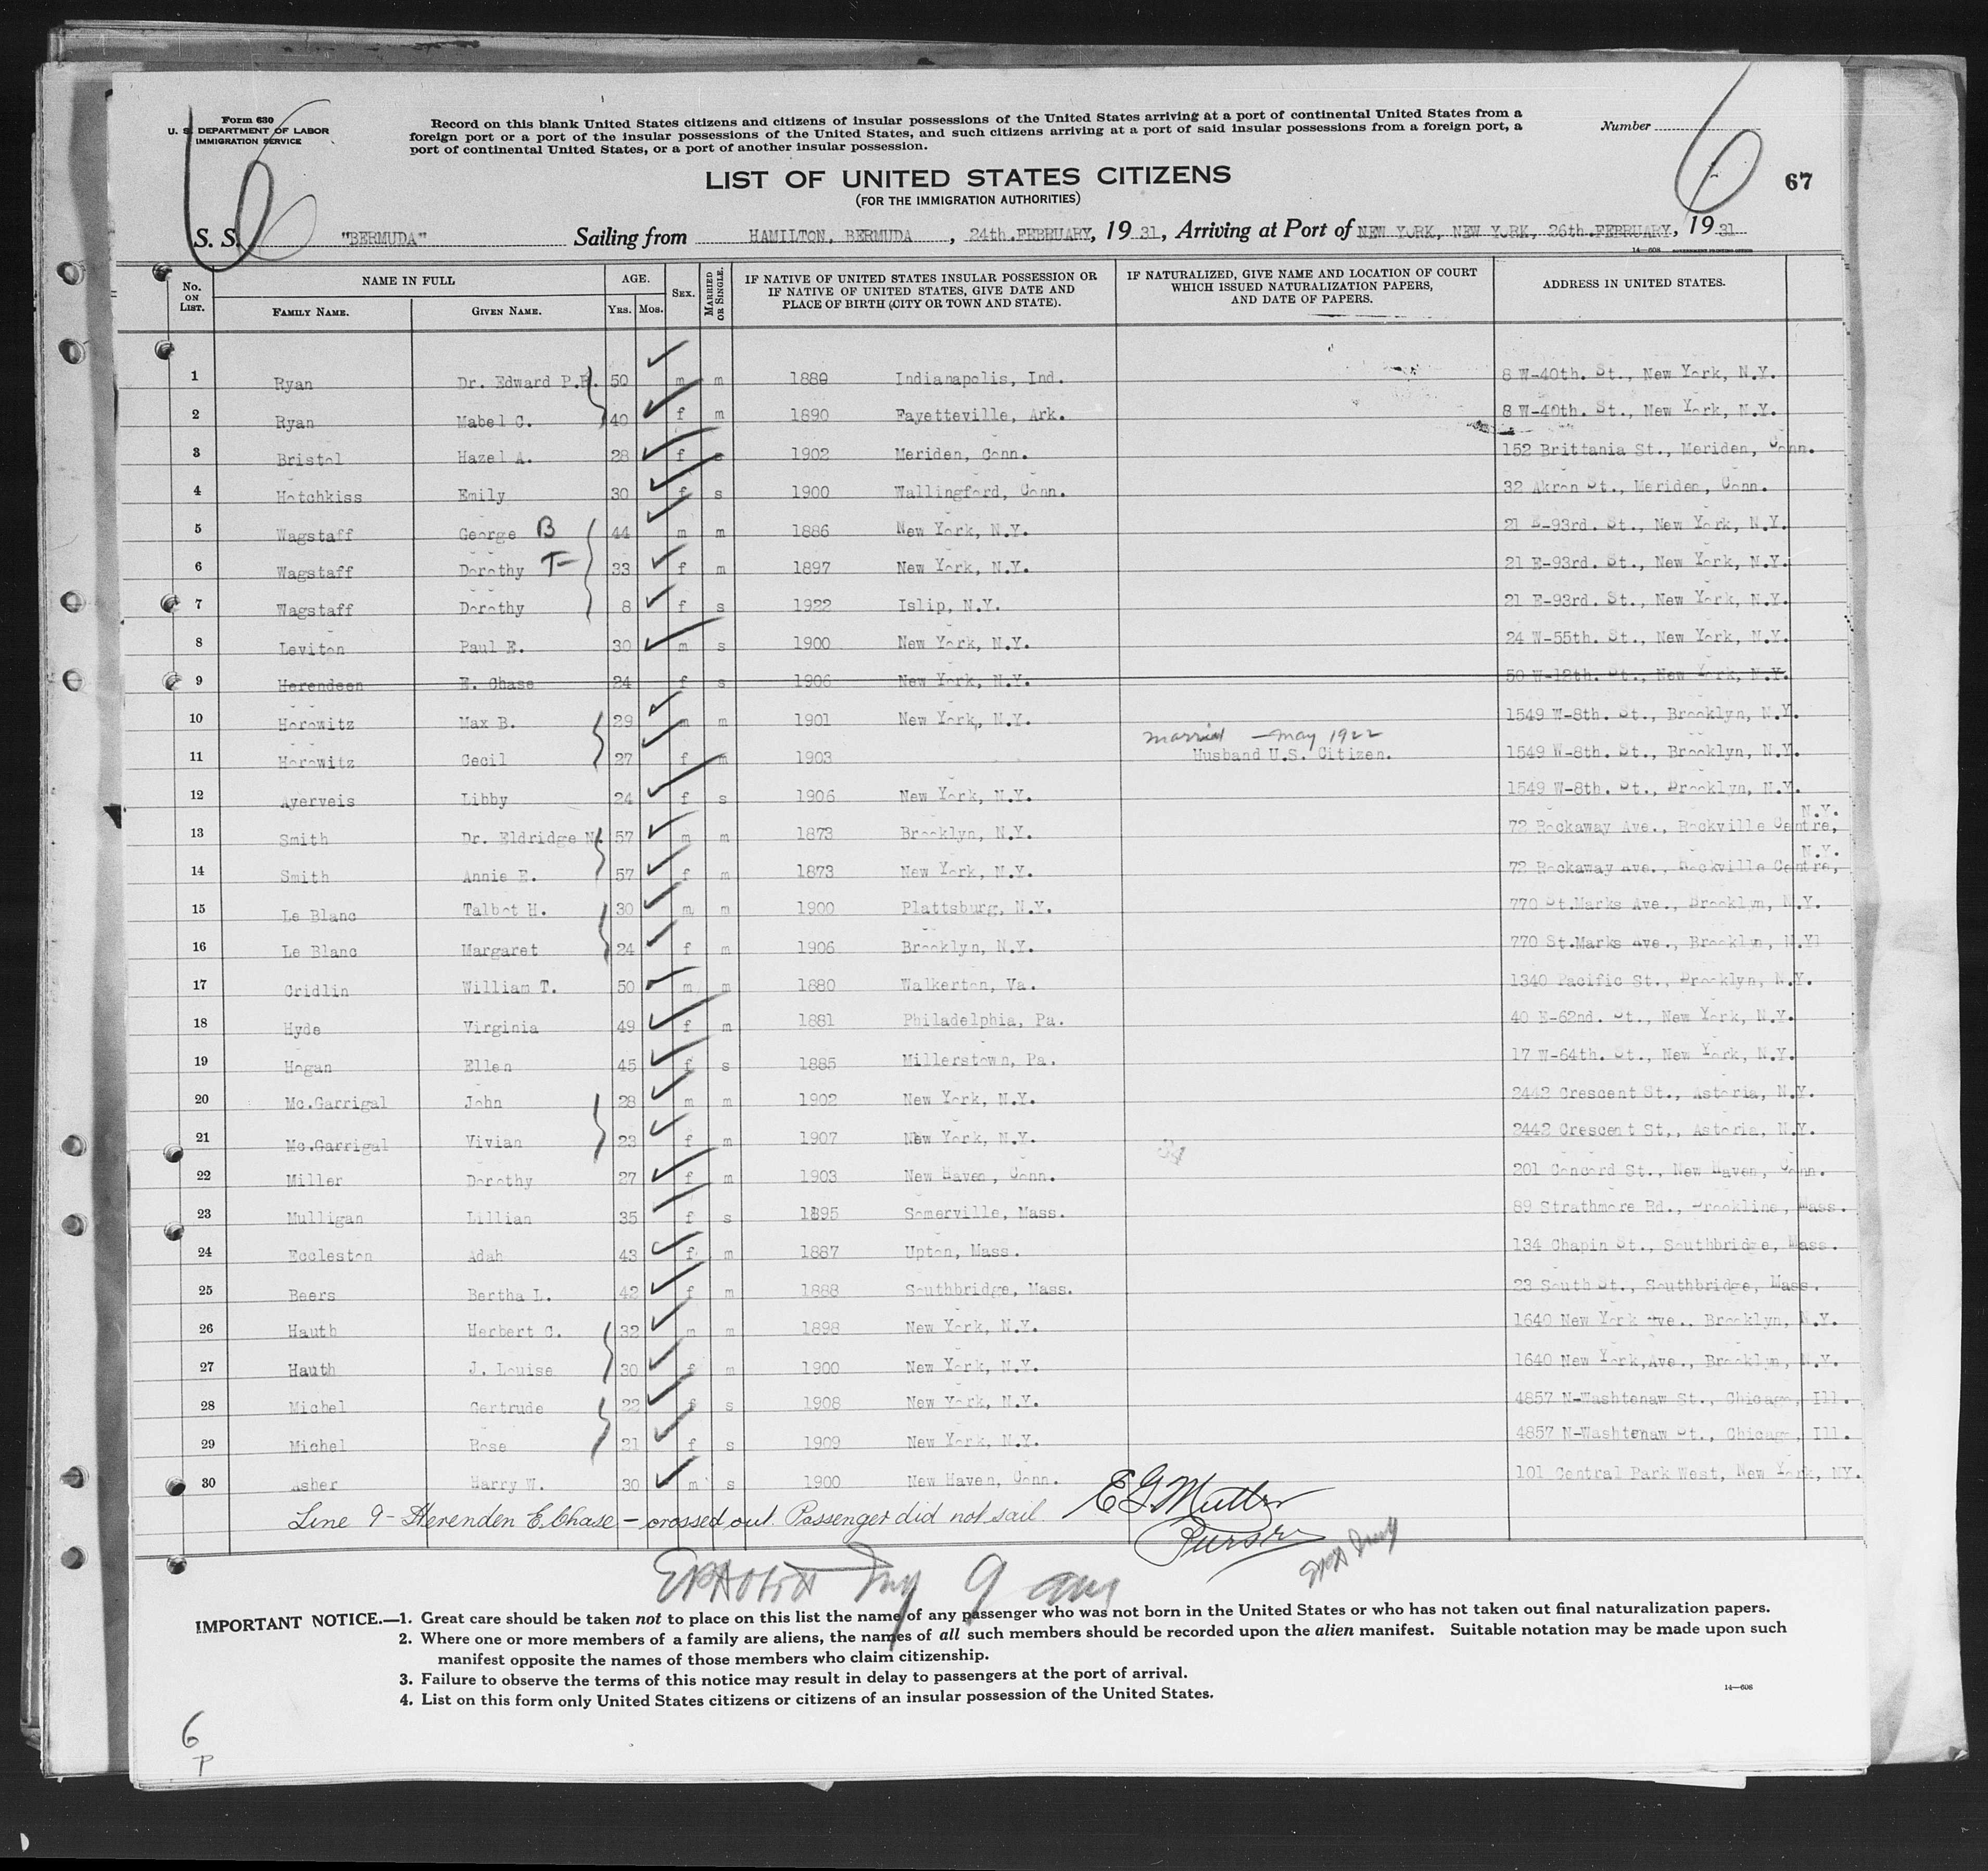 Form 630
U. S. DEPARTMENT OF LABOR
IMMIGRATION SERVICE
Record on this blank United States citizens and citizens of insular possessions of the United States arriving at a port of continental United States from a
foreign port or a port of the insular possessions of the United States, and such citizens arriving at a port of said insular possessions from a foreign port, a
port of continental United States, or a port of another insular possession.
Number
6
6
67
LIST OF UNITED STATES CITIZENS
(FOR THE IMMIGRATION AUTHORITIES)
S. S. "BERMUDA" Sailing from HAMILTON, BERMUDA, 24th.FEBRUARY, 1931, Arriving at Port of NEW YORK, NEW YORK, 26th.FEBRUARY, 1931
14—608 GOVERNMENT PRINTING OFFICE
No. ON LIST. NAME IN FULL AGE. SEX. MARRIED OR SINGLE. IF NATIVE OF UNITED STATES INSULAR POSSESSION OR IF NATIVE OF UNITED STATES, GIVE DATE AND PLACE OF BIRTH (CITY OR TOWN AND STATE). IF NATURALIZED, GIVE NAME AND LOCATION OF COURT WHICH ISSUED NATURALIZATION PAPERS, AND DATE OF PAPERS. ADDRESS IN UNITED STATES.
FAMILY NAME. GIVEN NAME. YRS. MOS.
1 Ryan Dr. Edward P.R. 50 m m 1880 Indianapolis, Ind. 8 W-40th. St., New York, N.Y.
2 Ryan Mabel C. 40 f m 1890 Fayetteville, Ark. 8 W-40th. St., New York, N.Y.
3 Bristol Hazel A. 28 f s 1902 Meriden, Conn. 152 Brittania St., Meriden, Conn.
4 Hotchkiss Emily 30 f s 1900 Wallingford, Conn. 32 Akron St., Meriden, Conn.
5 Wagstaff George B 44 m m 1886 New York, N.Y. 21 E-93rd. St., New York, N.Y.
6 Wagstaff Dorothy T 33 f m 1897 New York, N.Y. 21 E-93rd. St., New York, N.Y.
7 Wagstaff Dorothy 8 f s 1922 Islip, N.Y. 21 E-93rd. St., New York, N.Y.
8 Leviton Paul E. 30 m s 1900 New York, N.Y. 24 W-55th. St., New York, N.Y.
9 Herendeen E. Chase 24 f s 1906 New York, N.Y. 50 W-12th. St., New York, N.Y.
10 Horowitz Max B. 29 m m 1901 New York, N.Y. 1549 W-8th. St., Brooklyn, N.Y.
married - May 1922
11 Horowitz Cecil 27 f m 1903 Husband U.S. Citizen. 1549 W-8th. St., Brooklyn, N.Y.
12 Ayerveis Libby 24 f s 1906 New York, N.Y. 1549 W-8th. St., Brooklyn, N.Y.
13 Smith Dr. Eldridge N. 57 m m 1873 Brooklyn, N.Y. 72 Rockaway Ave., Rockville Centre, N.Y.
14 Smith Annie E. 57 f m 1873 New York, N.Y. 72 Rockaway ave., Rockville Centre, N.Y.
15 Le Blanc Talbot H. 30 m m 1900 Plattsburg, N.Y. 770 St.Marks Ave., Brooklyn, N.Y.
16 Le Blanc Margaret 24 f m 1906 Brooklyn, N.Y. 770 St.Marks ave., Brooklyn, N.Y.
17 Cridlin William T. 50 m m 1880 Walkerton, Va. 1340 Pacific St., Brooklyn, N.Y.
18 Hyde Virginia 49 f m 1881 Philadelphia, Pa. 40 E-62nd. St., New York, N.Y.
19 Hogan Ellen 45 f s 1885 Millerstown, Pa. 17 W-64th. St., New York, N.Y.
20 Mc.Garrigal John 28 m m 1902 New York, N.Y. 2442 Crescent St., Astoria, N.Y.
21 Mc.Garrigal Vivian 23 f m 1907 New York, N.Y. 2442 Crescent St., Astoria, N.Y.
22 Miller Dorothy 27 f m 1903 New Haven, Conn. 201 Concord St., New Haven, Conn.
23 Mulligan Lillian 35 f s 1895 Somerville, Mass. 89 Strathmore Rd., Brookline, Mass.
24 Eccleston Adah 43 f m 1887 Upton, Mass. 134 Chapin St., Southbridge, Mass.
25 Beers Bertha L. 42 f m 1888 Southbridge, Mass. 23 South St., Southbridge, Mass.
26 Hauth Herbert C. 32 m m 1898 New York, N.Y. 1640 New York ave., Brooklyn, N.Y.
27 Hauth J. Louise 30 f m 1900 New York, N.Y. 1640 New York,Ave., Brooklyn, N.Y.
28 Michel Gertrude 22 f s 1908 New York, N.Y. 4857 N-Washtenaw St., Chicago, Ill.
29 Michel Rose 21 f s 1909 New York, N.Y. 4857 N-Washtenaw St., Chicago, Ill.
30 Asher Harry W. 30 m s 1900 New Haven, Conn. 101 Central Park West, New York, NY.
Line 9 - Herenden E. Chase - crossed out. Passenger did not sail.
Purser
9 am
IMPORTANT NOTICE.—1. Great care should be taken not to place on this list the name of any passenger who was not born in the United States or who has not taken out final naturalization papers.
2. Where one or more members of a family are aliens, the names of all such members should be recorded upon the alien manifest. Suitable notation may be made upon such
manifest opposite the names of those members who claim citizenship.
3. Failure to observe the terms of this notice may result in delay to passengers at the port of arrival.
4. List on this form only United States citizens or citizens of an insular possession of the United States.
14—608
6
P